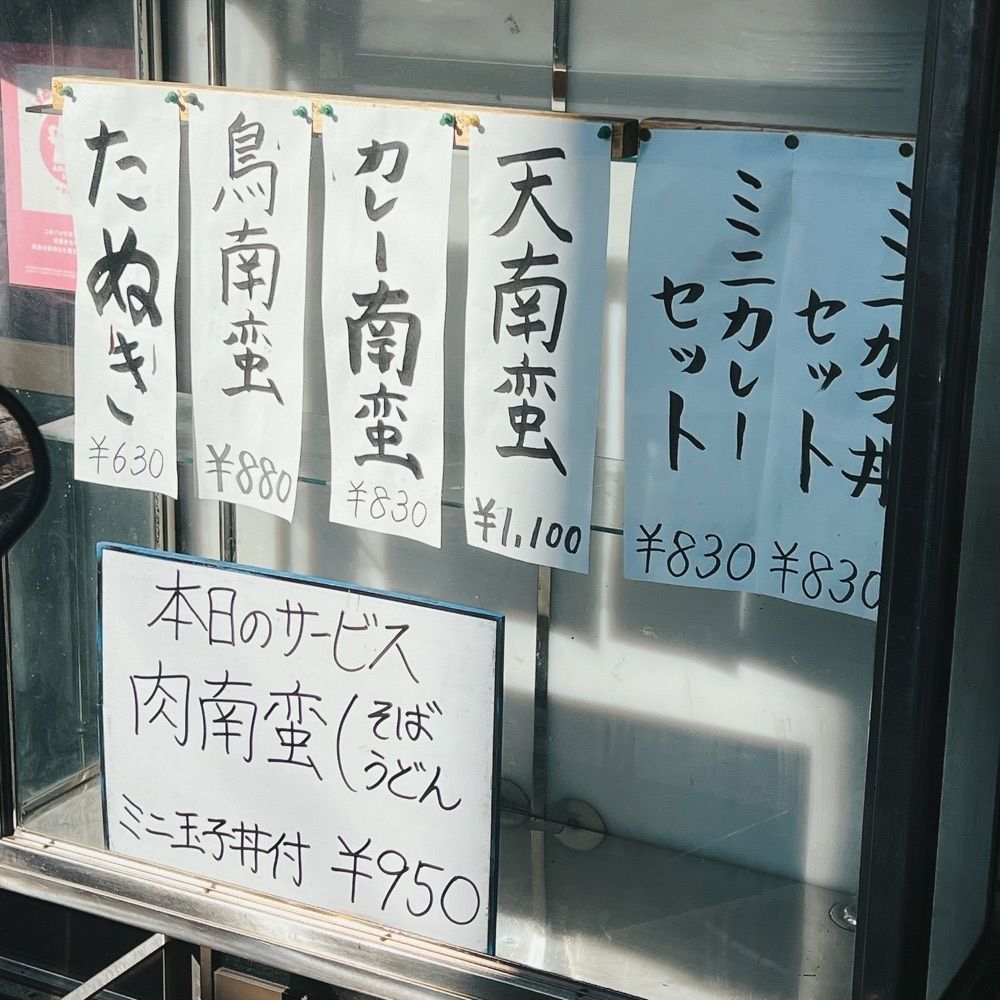 たぬき
¥630
鳥南蛮
¥880
カレー南蛮
¥830
天南蛮
¥1,100
ミニカレー
セット
¥830
ミニカツ丼
セット
¥830
本日のサービス
肉南蛮(そば
うどん
ミニ玉子丼付 ¥950